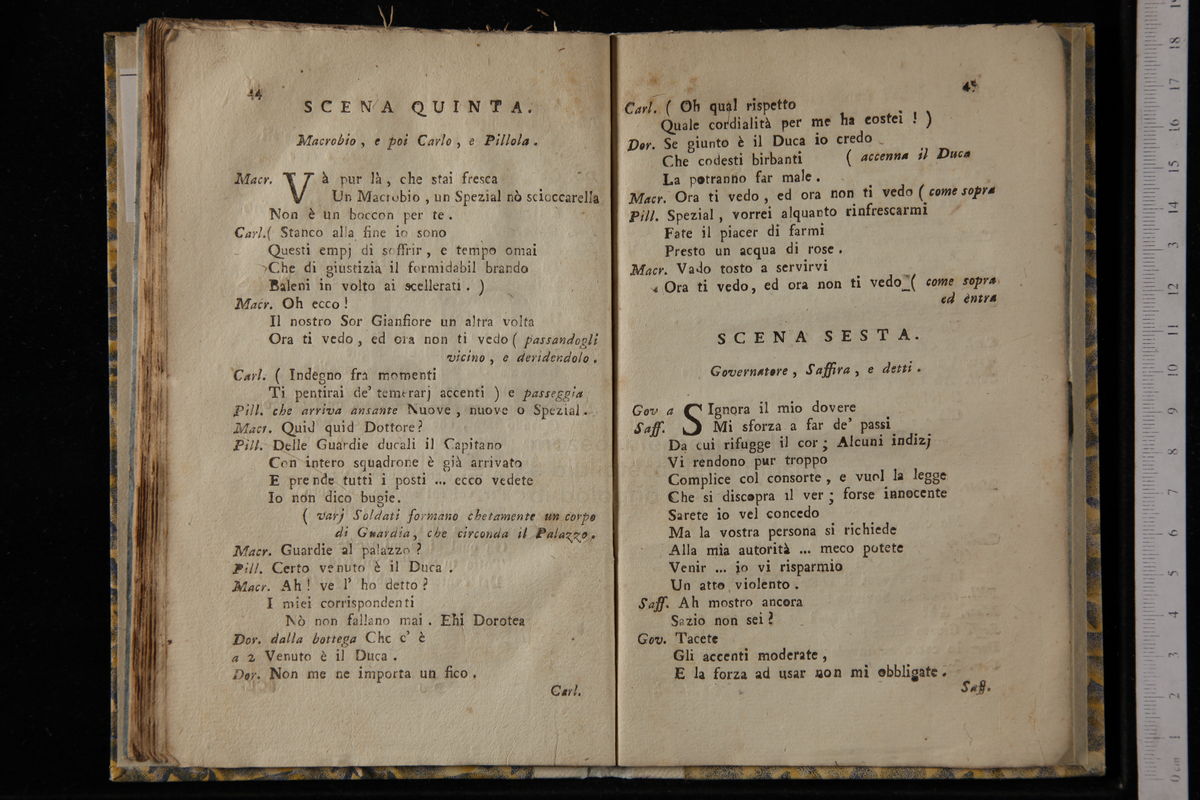 44
SCENA QUINTA.
Macrobio, e poi Carlo, e Pillola.
Macr. Và pur là, che stai fresca
Un Macrobio, un Spezial nò scioccarella
Non è un boccon per te.
Carl. ( Stanco alla fine io sono
Questi empj di soffrir, e tempo omai
Che di giustizia il formidabil brando
Baleni in volto ai scellerati. )
Macr. Oh ecco!
Il nostro Sor Gianfiore un altra volta
Ora ti vedo, ed ora non ti vedo ( passandogli
vicino, e deridendolo.
Carl. ( Indegno fra momenti
Ti pentirai de' temerarj accenti ) e passeggia
Pill. che arriva ansante Nuove, nuove o Spezial.
Macr. Quid quid Dottore?
Pill. Delle Guardie ducali il Capitano
Con intero squadrone è già arrivato
E prende tutti i posti ... ecco vedete
Io non dico bugie.
( varj Soldati formano chetamente un corpo
di Guardia, che circonda il Palazzo.
Macr. Guardie al palazzo?
Pill. Certo venuto è il Duca.
Macr. Ah! ve l' ho detto?
I miei corrispondenti
Nò non fallano mai. Ehi Dorotea
Dor. dalla bottega Che c' è
a 2 Venuto è il Duca.
Dor. Non me ne importa un fico.
Carl.
45
Carl. ( Oh qual rispetto
Quale cordialità per me ha costei! )
Dor. Se giunto è il Duca io credo
Che codesti birbanti ( accenna il Duca
La potranno far male.
Macr. Ora ti vedo, ed ora non ti vedo ( come sopra
Pill. Spezial, vorrei alquanto rinfrescarmi
Fate il piacer di farmi
Presto un acqua di rose.
Macr. Vado tosto a servirvi
Ora ti vedo, ed ora non ti vedo ( come sopra
ed entra
SCENA SESTA.
Governatore, Saffira, e detti.
Gov a SIgnora il mio dovere
Saff. Mi sforza a far de' passi
Da cui rifugge il cor; Alcuni indizj
Vi rendono pur troppo
Complice col consorte, e vuol la legge
Che si discopra il ver; forse innocente
Sarete io vel concedo
Ma la vostra persona si richiede
Alla mia autorità ... meco potete
Venir ... io vi risparmio
Un atto violento.
Saff. Ah mostro ancora
Sazio non sei?
Gov. Tacete
Gli accenti moderate,
E la forza ad usar non mi obbligate.
Saff.